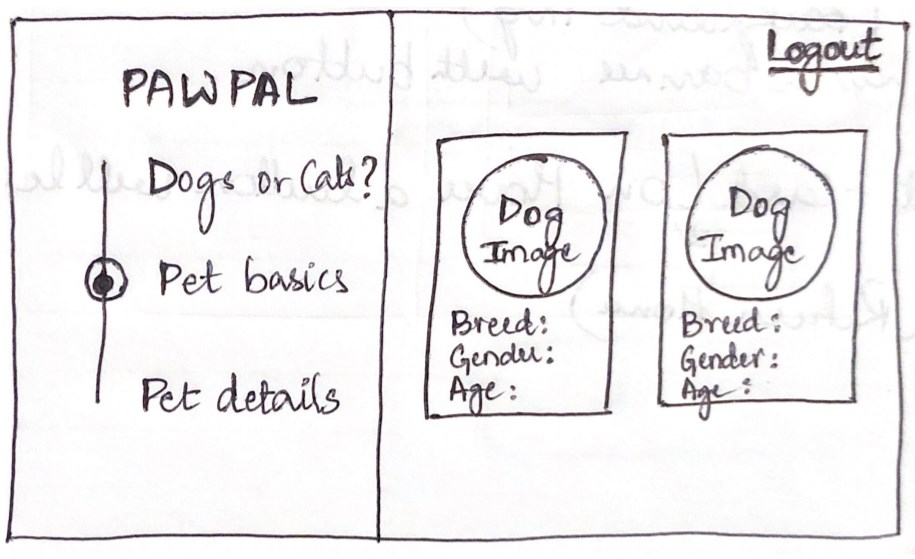 PAWPAL
Dogs or Cats?
Pet basics
Pet details
Logout
Dog
Image
Breed:
Gender:
Age:
Dog
Image
Breed:
Gender:
Age: